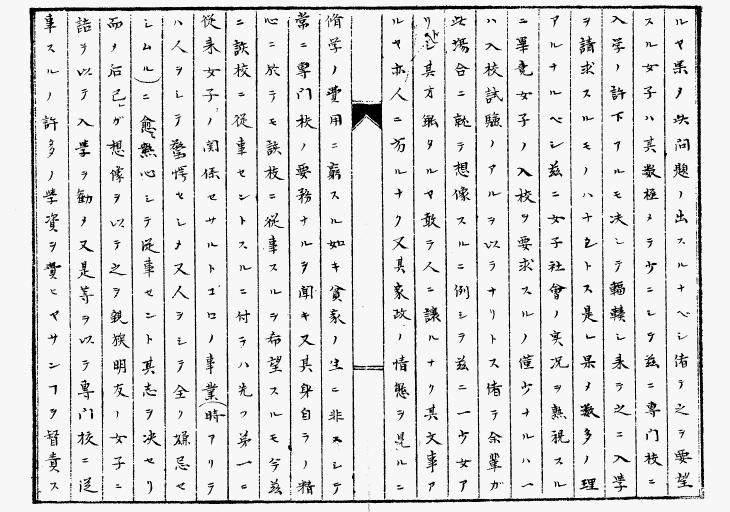 ルヤ果タ此問題ノ出スルナベシ偖テ之ヲ要望
スル女子ハ其数極メテ少ニシテ茲ニ専門校ニ
入学ノ許下アルモ决シテ輻轃シ来テ之ニ入学
ヲ請求スルモノハナシトス是レ果タ数多ノ理
アルナルベシ茲ニ女子社會ノ実况ヲ熟視スル
ニ畢竟女子ノ入校ヲ要求スルノ僅少ナルハ一
ハ入校試驗ノアルヲ以テナリトス偖テ余輩ガ
此塲合ニ就テ想像スルニ例シテ茲ニ一少女ア
リシ其才能タルヤ敢テ人ニ讓ルナク其文事ア
ルヤ亦人ニ劣ルナク又其家政ノ情態ヲ見ルニ
脩学ノ費用ニ窮スル如キ貧家ノ生ニ非スシテ
常ニ専門校ノ要務ナルヲ聞キ又其身自ラノ精
心ニ於テモ該校ニ從事スルヲ希望スルモ今茲
ニ該校ニ從事セントスルニ付テハ先ツ第一ニ
從来女子ノ関係セサルトコロノ事業(時アリテ
ハ人ヲシテ驚愕セシメ又人ヲシテ全ク嫌忌セ
シムル)ニ愈熱心シテ從事セント其志ヲ决セリ
而タ后己ガ想像ヲ以テ之ヲ親族明友ノ女子ニ
詰ヲ以テ入學ヲ勧メ又是等ヲ以テ専門校ニ從
事スルノ許多ノ學資ヲ費ヒヤサンヿヲ督責ス